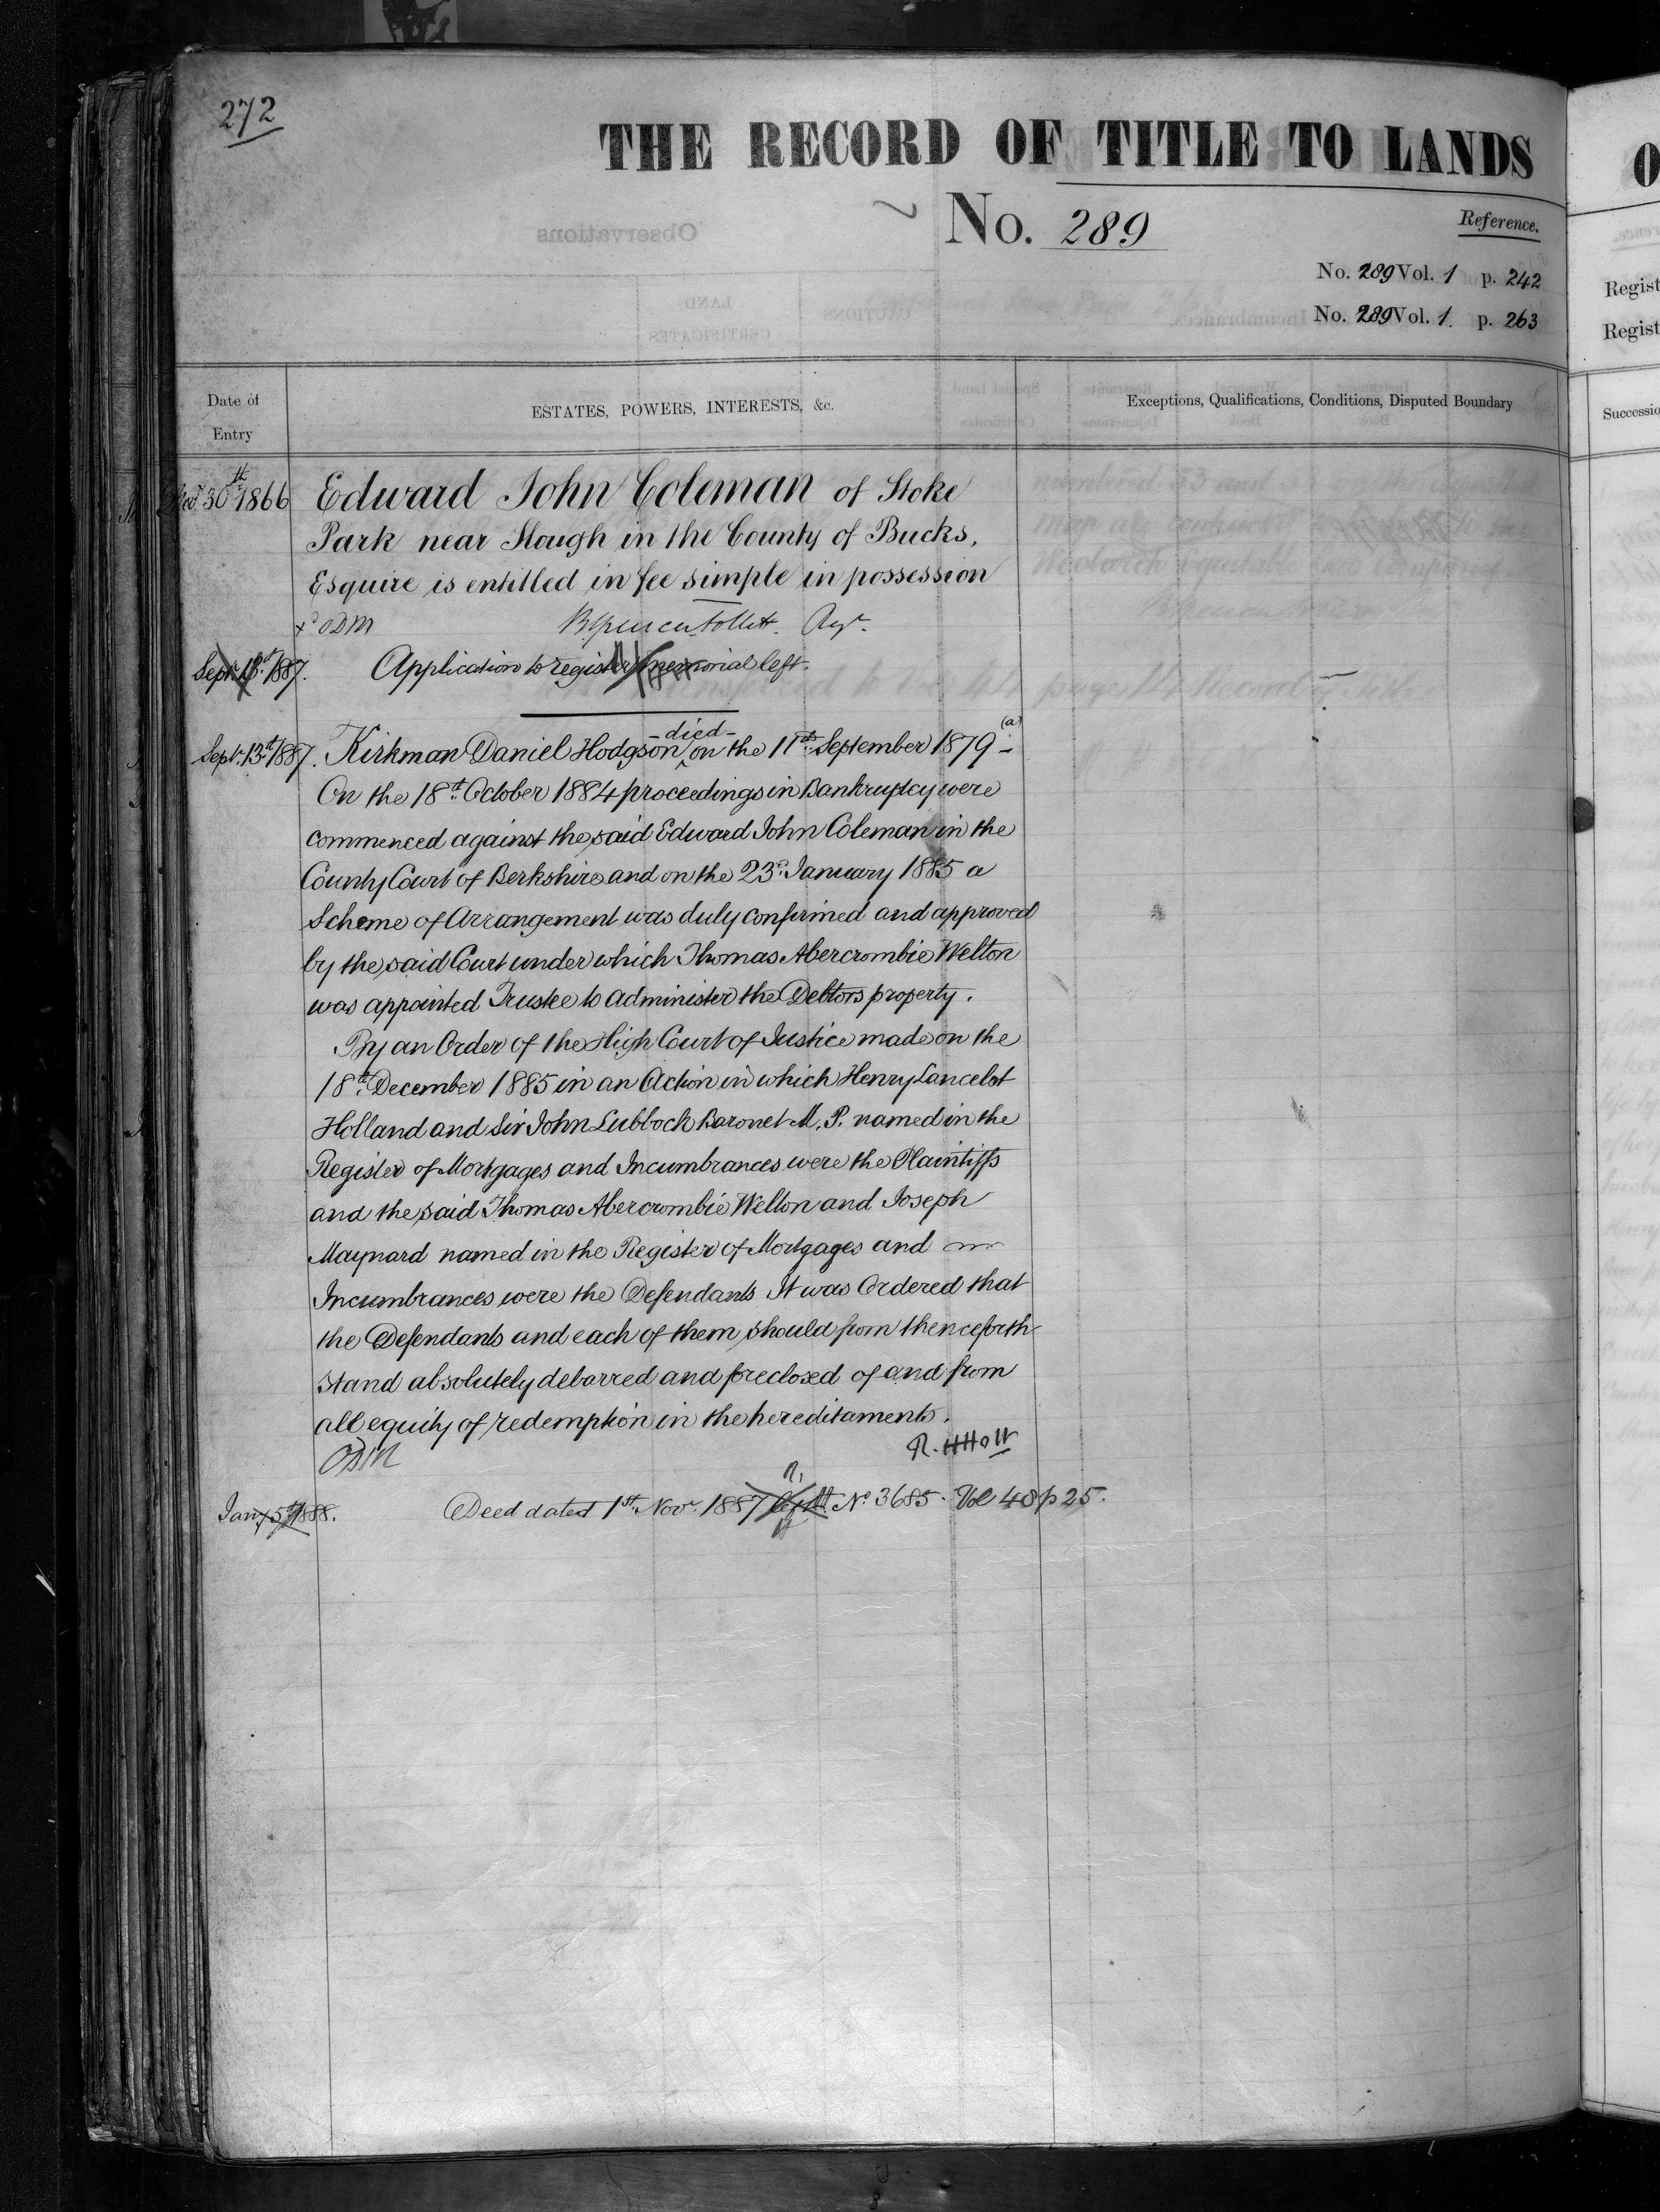 272
THE RECORD OF TITLE TO LANDS
No. 289
Reference.
No. 289 Vol. 1 p. 242
No. 289 Vol. 1. p. 263
Regist
Regist
Date of
Entry
ESTATES, POWERS, INTERESTS, &c.
Exceptions, Qualifications, Conditions, Disputed Boundary
Successio
30th 1866 Edward John Coleman of Stoke
Park near Slough in the County of Bucks,
Esquire is entitled in fee simple in possession
ODM
Sept. 13th 1887. Application to register memorial left.
Sept. 13th 1887. Kirkman Daniel Hodgson -died- on the 11th September 1879 (a)
On the 18th October 1884 proceedings in Bankruptcy were
commenced against the said Edward John Coleman in the
County Court of Berkshire and on the 23d January 1885 a
Scheme of Arrangement was duly confirmed and approved
by the said Court under which Thomas Abercrombie Welton
was appointed Trustee to administer the Debtors property.
By an Order of the High Court of Justice made on the
18th December 1885 in an Action in which Henry Lancelot
Holland and Sir John Lubbock Baronet M.P. named in the
Register of Mortgages and Incumbrances were the Plaintiffs
and the said Thomas Abercrombie Welton and Joseph
Maynard named in the Register of Mortgages and
Incumbrances were the Defendants It was Ordered that
the Defendants and each of them should from thenceforth
stand absolutely debarred and foreclosed of and from
all equity of redemption in the hereditaments.
ODM R. H Holt
Jany 5th 1888. Deed dated 1st Nov. 1887 No 3685. Vol 48 p 25.